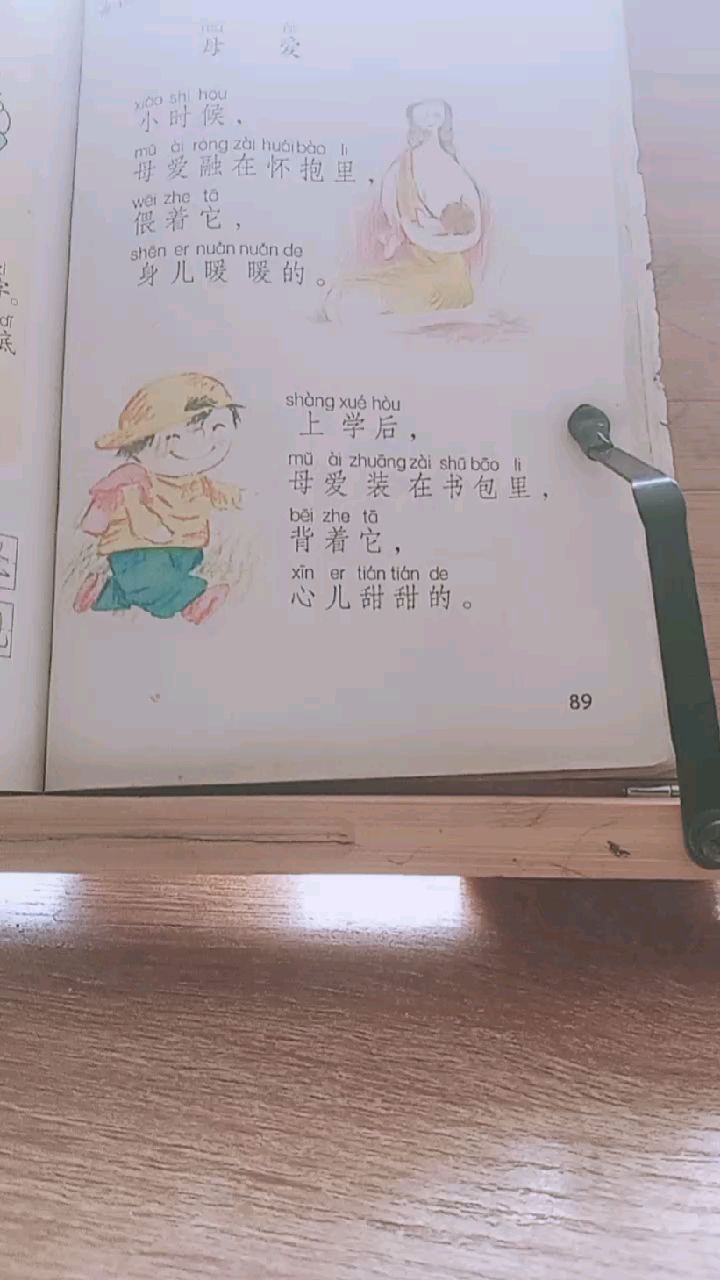 母 爱
xiǎo shí hou
小时候，
mǔ ài róng zài huái bào lǐ
母爱融在怀抱里，
wēi zhe tā
偎着它，
shēn er nuǎn nuǎn de
身儿暖暖的。
shàng xué hòu
上学后，
mǔ ài zhuāng zài shū bāo lǐ
母爱装在书包里，
bēi zhe tā
背着它，
xīn er tián tián de
心儿甜甜的。
89
底